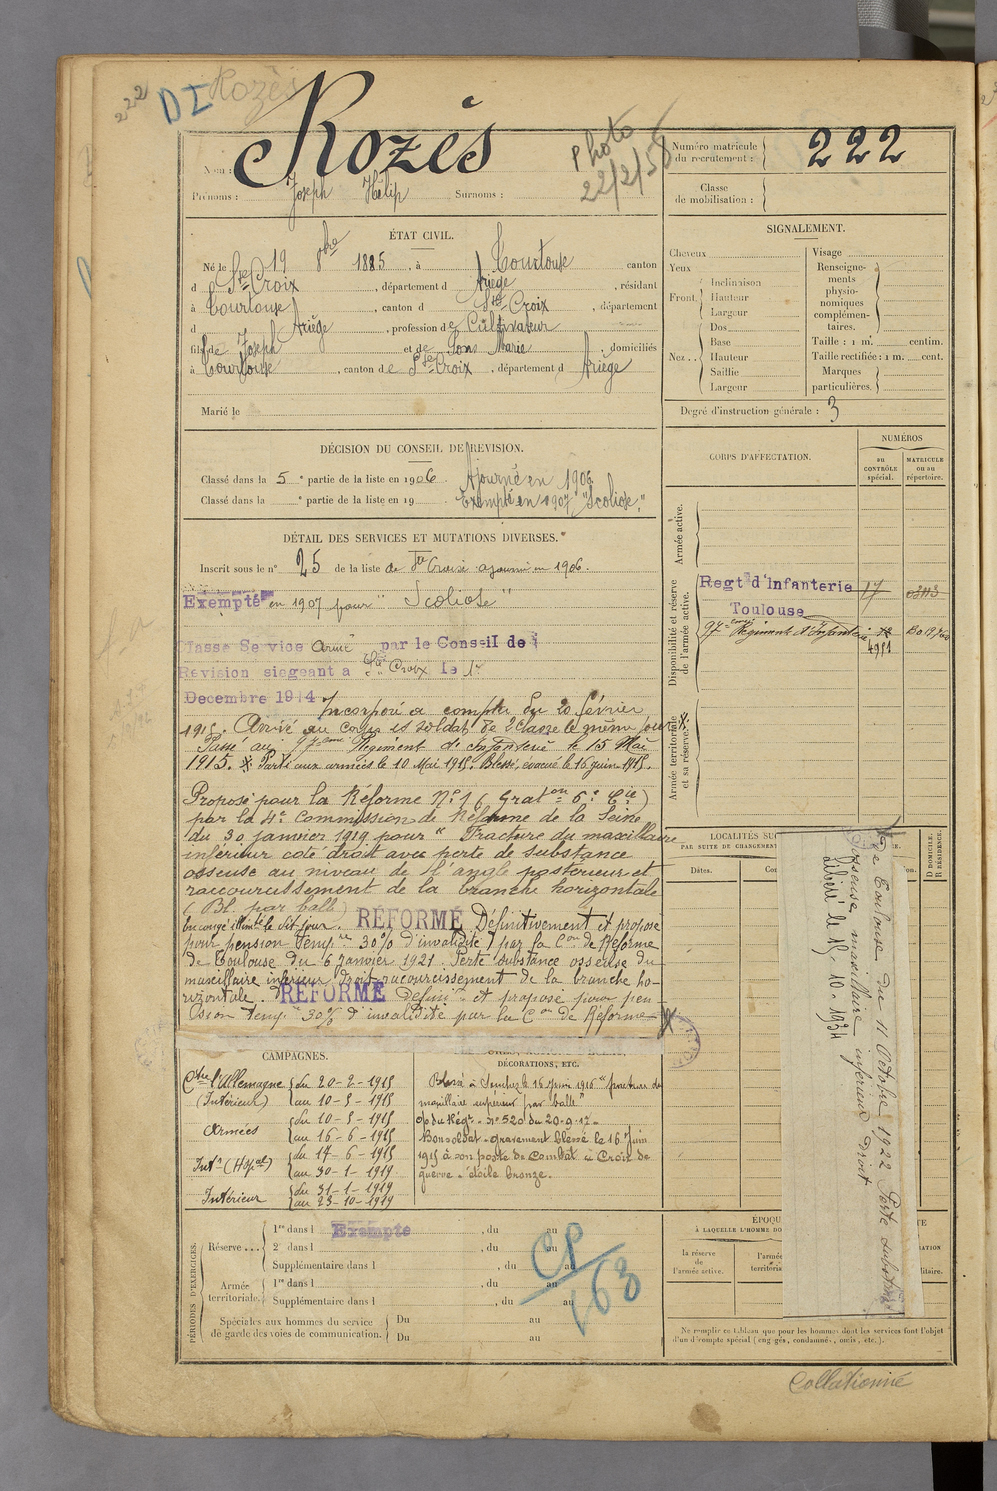 222
DI
Rozès
Rozès
Photo
22/2/58
Nom :
Prénoms : Joseph Hélip Surnoms :
Numéro matricule
du recrutement : 222
Classe
de mobilisation :
ÉTAT CIVIL.
Né le 19 8bre 1885, à Tourtouse canton
d Ste-Croix, département d Ariège, résidant
à Tourtouse, canton d Ste Croix, département
d Ariège, profession de Cultivateur
fils de Joseph et de Pons Marie, domiciliés
à Tourtouse, canton de Ste-Croix, département d Ariège
Marié le
SIGNALEMENT.
Cheveux
Yeux
Front. Inclinaison
Hauteur
Largeur
Nez.. Dos
Base
Hauteur
Saillie
Largeur
Visage
Renseigne-
ments
physio-
nomiques
complémen-
taires.
Taille : 1 m. centim.
Taille rectifiée : 1 m. cent.
Marques
particulières.
Degré d'instruction générale : 3
DÉCISION DU CONSEIL DE REVISION.
Classé dans la 5e partie de la liste en 1906. Ajourné en 1906
Classé dans la e partie de la liste en 19 Exempté en 1907 "Scoliose"
CORPS D'AFFECTATION.
NUMÉROS
au
CONTRÔLE
spécial.
MATRICULE
ou au
répertoire.
DÉTAIL DES SERVICES ET MUTATIONS DIVERSES.
Inscrit sous le n° 25 de la liste de Ste Croix ajourné en 1906.
Exempté en 1907 pour "Scoliose"
Classe Service Armé par le Conseil de
Revision siegeant a Ste Croix le 1er
Decembre 1914 Incorporé à compter du 20 février
1915. Arrivé au corps et soldat de 2e classe le même jour
Passé au 97eme Régiment d'Infanterie le 15 Mai
1915. Parti aux armées le 10 Mai 1915. Blessé, évacué le 16 juin 1915.
Proposé pour la Réforme N° 1 (Graton 6e Cie)
par la 4e Commission de Réforme de la Seine
du 30 janvier 1919 pour "Fracture du maxillaire
inférieur coté droit avec perte de substance
osseuse au niveau de l'angle postérieur et
raccourcissement de la branche horizontale
(Bl. par balle)
En congé illimité le dit jour. RÉFORMÉ Définitivement et proposé
pour pension temp.re 30% d'invalidité par la Con de Réforme
de Toulouse du 6 janvier 1921. Perte substance osseuse du
maxillaire inférieur droit raccourcissement de la branche ho-
rizontale. RÉFORMÉ défini et proposé pour pen-
sion temp.re 30% d'invalidité par la Con de Réforme
Armée active.
Disponibilité et réserve
de l'armée active.
Regt d'Infanterie 17
Toulouse
97eme Régiment d'Infanterie
4951
Armée territoriale
et sa réserve.
LOCALITÉS SUC
PAR SUITE DE CHANGEMENT
Dates.
D DOMICILE.
R RÉSIDENCE.
de Toulouse du 11 Octobre 1922 Perte substance
osseuse maxillaire inférieur droit
Libéré le 15-10-1934
CAMPAGNES.
Ctre l'Allemagne du 20-2-1915
(Intérieur) au 10-5-1915
Armées du 10-5-1915
au 16-6-1915
Intr (Hôpal) du 17-6-1915
au 30-1-1919
Intérieur du 31-1-1919
au 23-10-1919
DÉCORATIONS, ETC.
Blessé à Souchez le 16 Juin 1915 "fracture du
maxillaire supérieur par balle"
O/ du Régt - N° 520 du 20-9-17-
Bon soldat - gravement blessé le 16 Juin
1915 à son poste de combat à Croix de
guerre - étoile bronze.
PÉRIODES D'EXERCICES.
Réserve ... 1re dans l Exempte, du au
2e dans l, du au
Supplémentaire dans l, du au
Armée
territoriale. 1re dans l, du au
Supplémentaire dans l, du au
Spéciales aux hommes du service
de garde des voies de communication. Du au
Du au
CP
168
ÉPOQU
À LAQUELLE L'HOMME DO
la réserve
de
l'armée active.
l'armée
territoria
Ne remplir ce tableau que pour les hommes dont les services font l'objet
d'un décompte spécial (engagés, condamnés, omis, etc.).
Collationné